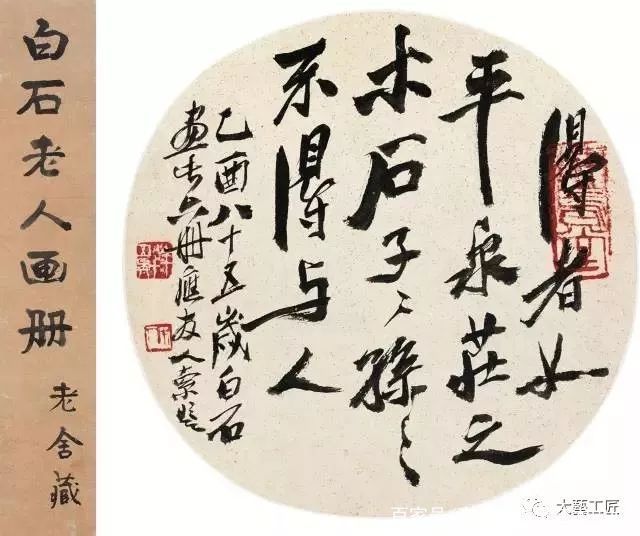 白石老人画册
老舍藏
得者如
平泉莊之
木石子〻孫〻
不得与人
乙酉八十五歲白石
畫此六册應友人索題
百家号
大藝工匠